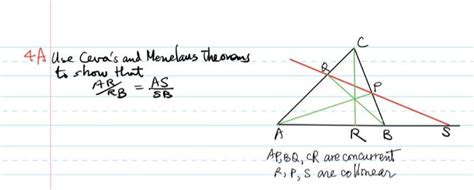 4A Use Ceva's and Menelaus Theorems
to show that
AR/RB = AS/SB
C
Q
P
A
R
B
S
AP, BQ, CR are concurrent
R, P, S are collinear